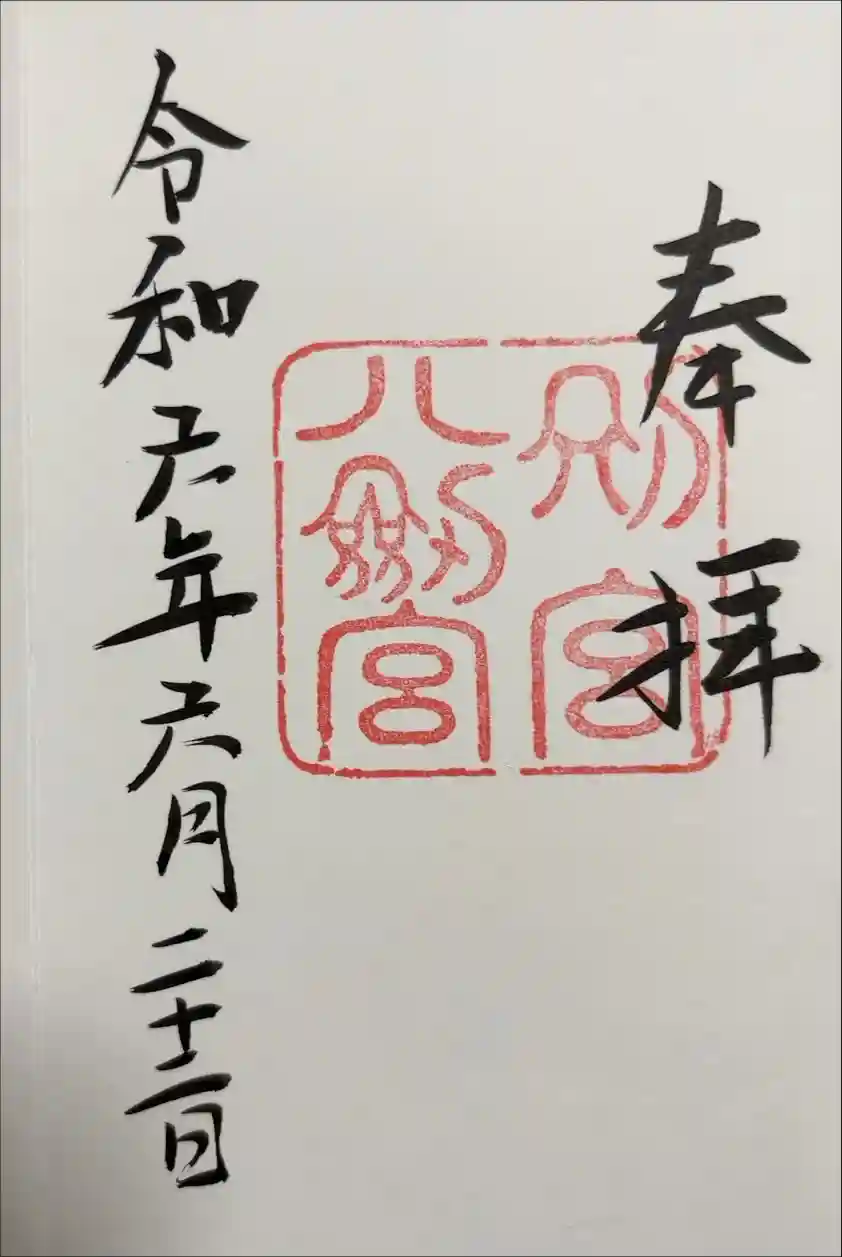 奉拝
別宮
八剣宮
令和六年六月二十二日